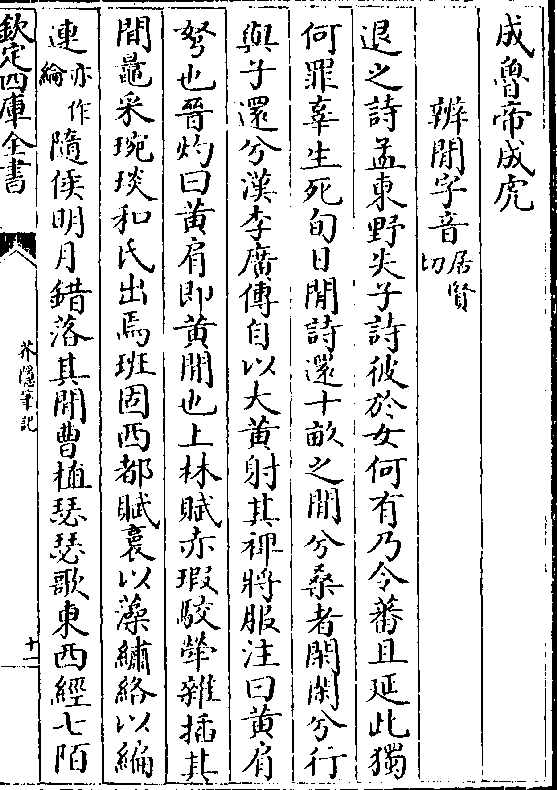 成魯帝成虎
辨閒字音居賢切
退之詩孟東野失子詩彼於女何有乃令蕃且延此獨
何罪辜生死旬日閒詩還十畝之閒兮桑者閑閑兮行
與子還兮漢李廣傳自以大黄射其裨將服注曰黄肩
弩也晉灼曰黄肩即黄閒也上林賦赤瑕駮犖雜揷其
閒鼂采琬琰和氏出焉班固西都賦裛以藻繡絡以編
連亦作綸隨侯明月錯落其閒曹植瑟瑟歌東西經七陌
欽定四庫全書
芥隱筆記
十二